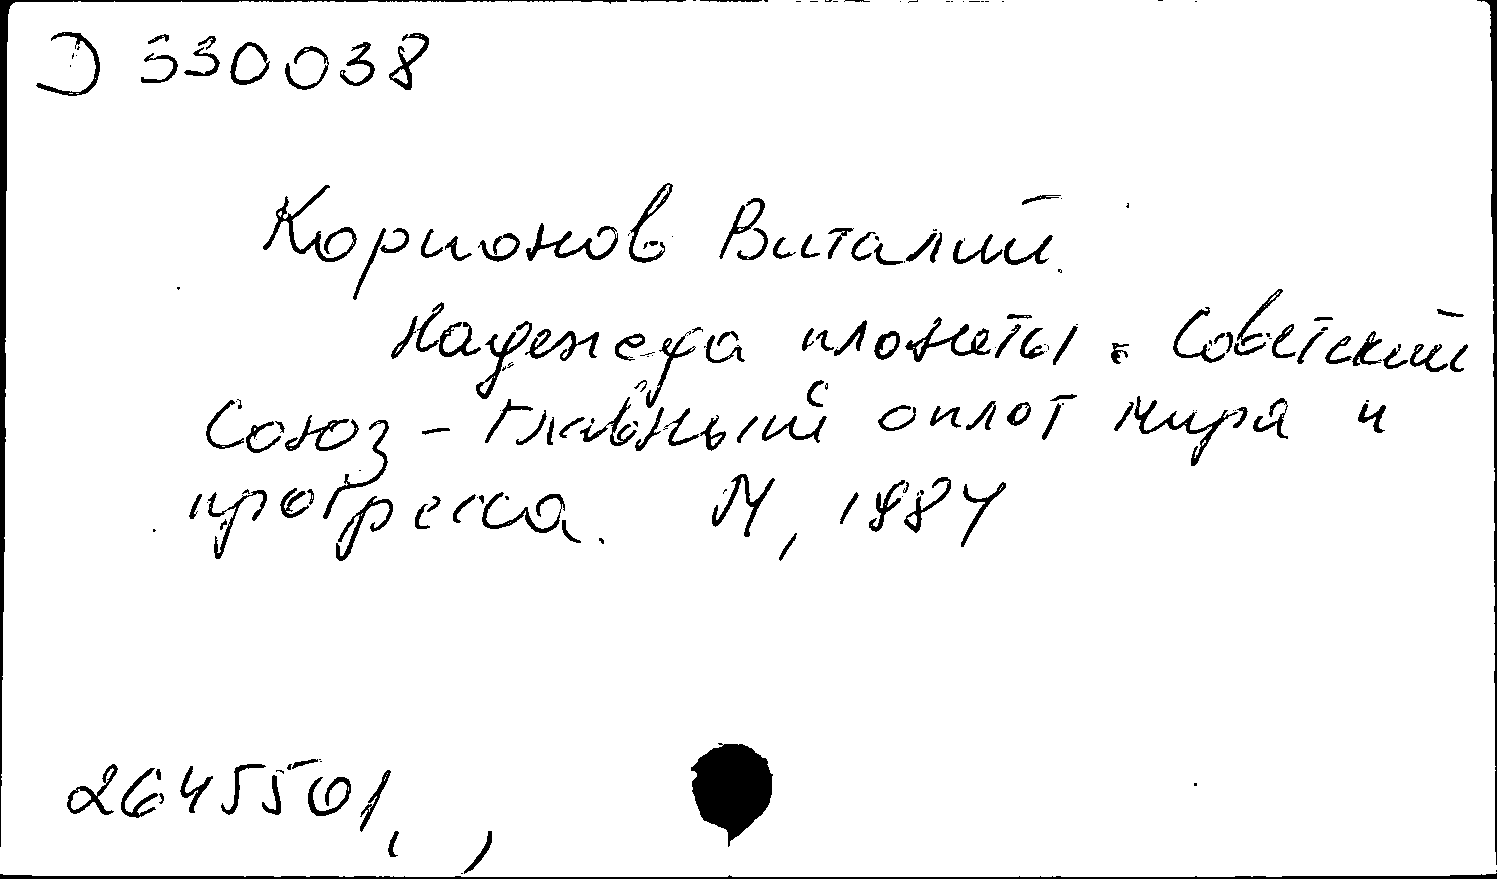 D 530038
Корионов Виталий.
Надежда планеты. Советский
Союз - главный оплот мира и
прогресса. М, 1984
2645501,